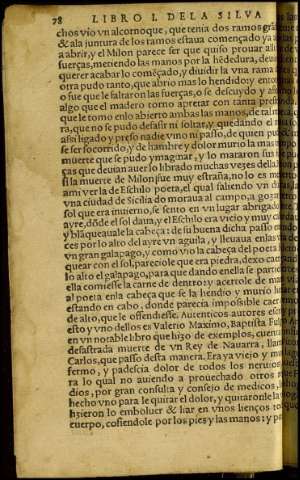 78 LIBRO I. DE LA SILVA
chos vio vn alcornoque, que tenia dos ramos
& a la juntura de los ramos estaua començado ya a
a abrir, y el Milon parece ser que quiso prouar
fuerças, metiendo las manos por la hededura,
querer acabar lo començado, y diuidir la vna rama
otra pudo tanto, que abrio mas lo hendido: y
o fue que le faltaron las fuerças, o se descuydo y
algo que el madero torno apretar con tanta
que le tomo enlo abierto ambas las manos, de tal
ra, que no se pudo desasir ni soltar, y quedando el
assi ligado y preso nadie vino ni passo, de quien
se ser socorrido, y de hambre y dolor murio la mas
muerte que se pudo ymaginar, y lo mataron sus
ças que deuian auer lo librado muchas vezes della.
si la muerte de Milon fue muy estraña, no lo es
a mi ver la de Eschilo poeta, el qual saliendo vn dia
vna ciudad de Sicilia do moraua al campo, a gozar
sol que era inuierno, se sento en vn lugar abrigado
ayre, dõde el sol daua, y el Eschilo era viejo y muy
y blãqueauale la cabeça: de su buena dicha passo
ces por lo alto del ayre vn aguila, y lleuaua en las
vn gran galapago, y como vio la cabeça del poeta
quear con el sol, pareciole que era piedra, dexo
lo alto el galapago, para que dando enella se
ella comiesse la carne de dentro: y acertole de
al poeta enla cabeça que se la hendio y murio
estando en cabo, donde parecia impossible
de alto, que le offendiesse. Autenticos autores
esto y vno dellos es Valerio Maximo, Baptista
en vn notable libro que hizo de exemplos, cuenta
desastrada muerte de vn Rey de Nauarra,
Carlos, que passo desta manera. Era ya viejo y
fermo, y padescia dolor de todos los neruios
ra lo qual no auiendo a prouechado otros
dios, por gran consulta y consejo de medicos,
hecho vno para le quitar el dolor, y quitaronle la
hizieron lo emboluer & liar en vnos lienços
cuerpo, cosiendole por los pies y las manos: y